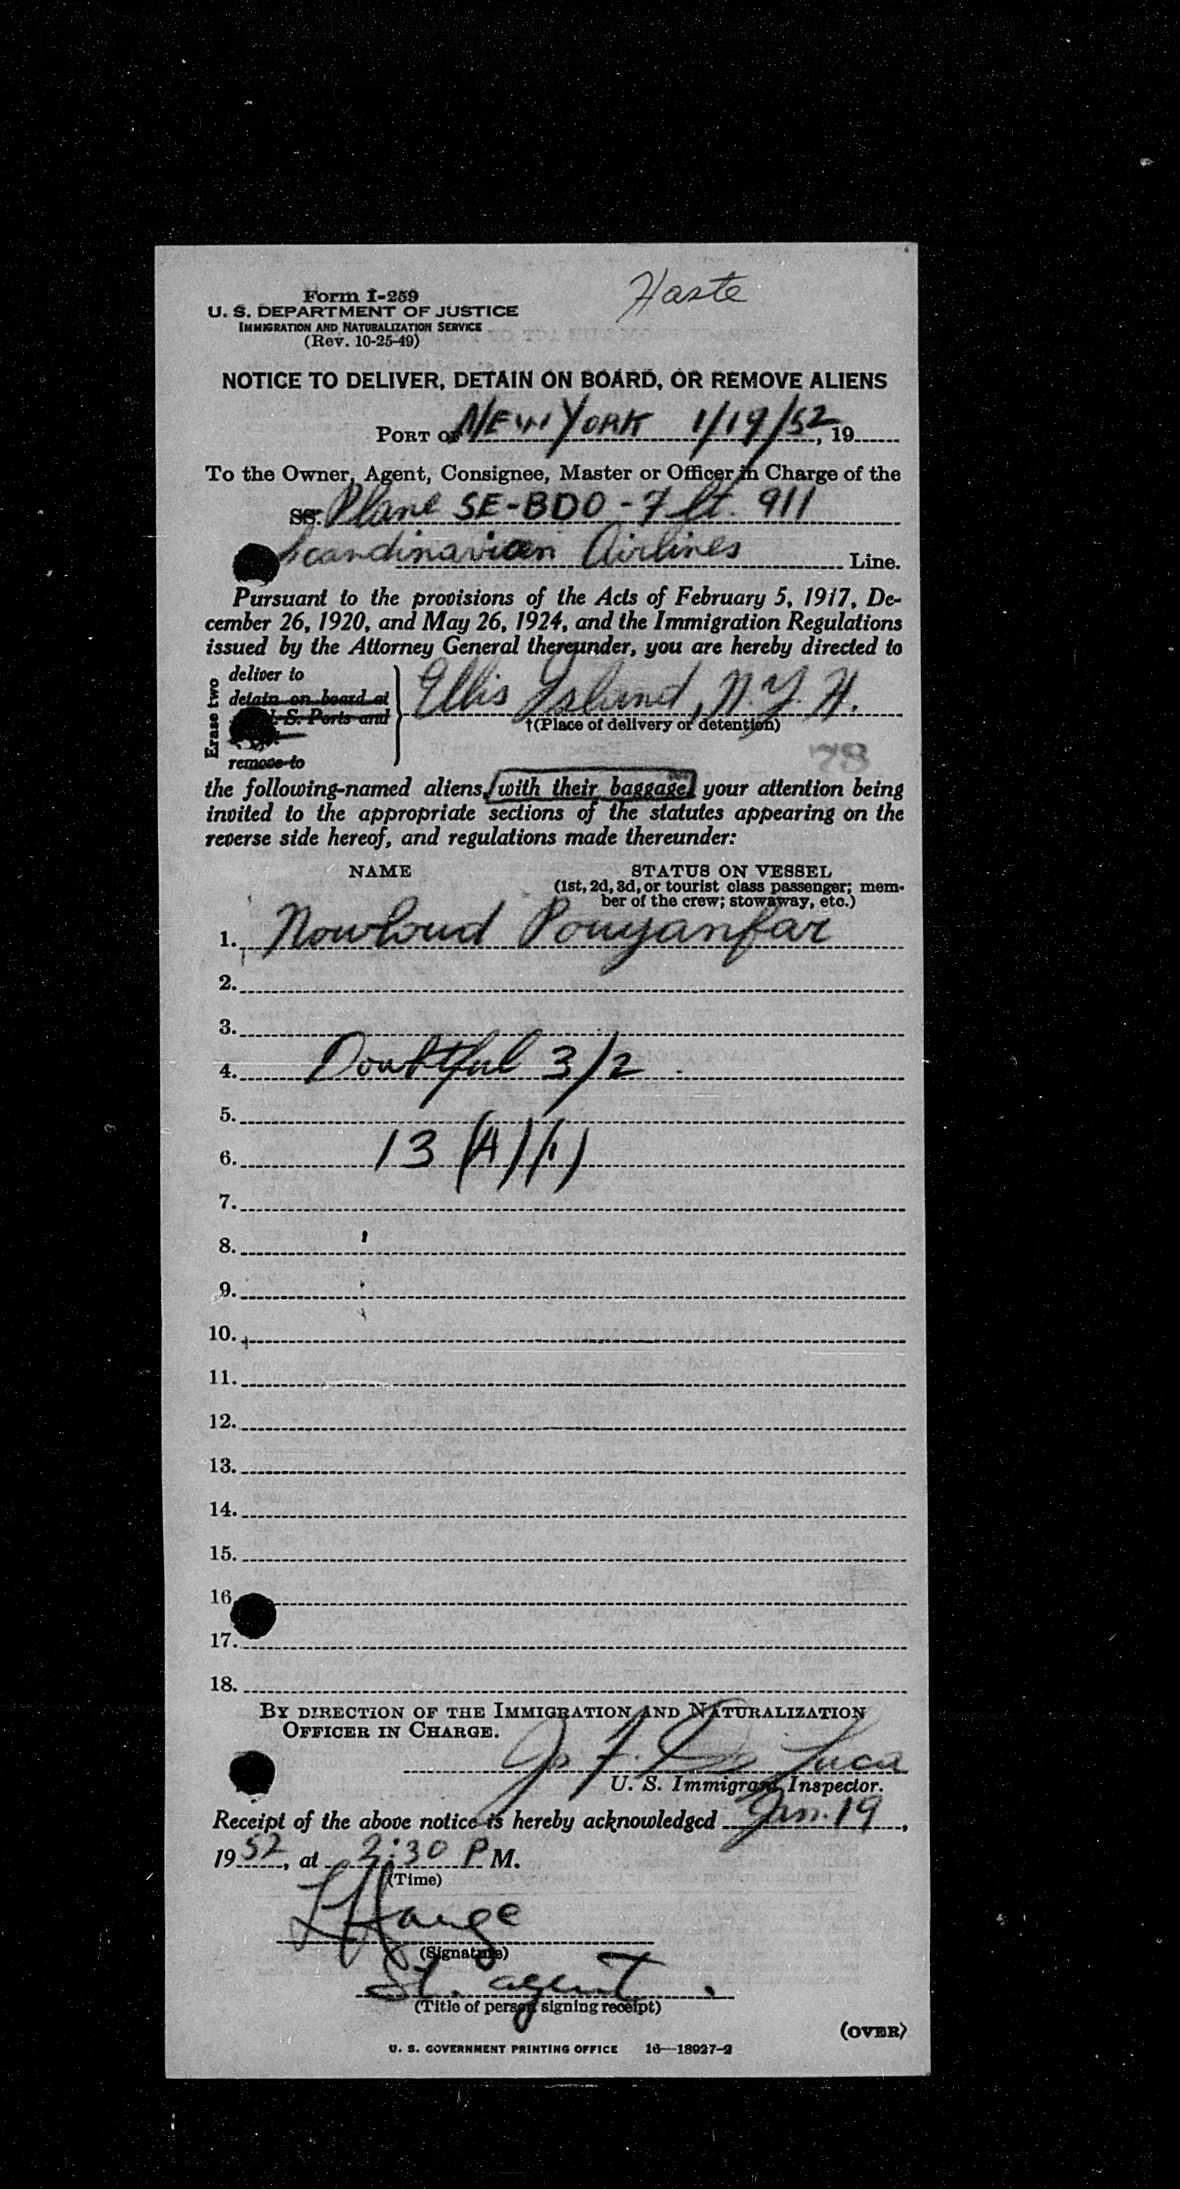 Haste
Form I-259
U. S. DEPARTMENT OF JUSTICE
IMMIGRATION AND NATURALIZATION SERVICE
(Rev. 10-25-49)
NOTICE TO DELIVER, DETAIN ON BOARD, OR REMOVE ALIENS
PORT OF NEW YORK 1/19/52, 19
To the Owner, Agent, Consignee, Master or Officer in Charge of the
SS. Plane SE-BDO - Flt. 911
Scandinavian Airlines Line.
Pursuant to the provisions of the Acts of February 5, 1917, De-
cember 26, 1920, and May 26, 1924, and the Immigration Regulations
issued by the Attorney General thereunder, you are hereby directed to
Erase two
deliver to
detain on board at
U. S. Ports and
remove to
Ellis Island, N.Y.H.
†(Place of delivery or detention)
78
the following-named aliens, with their baggage, your attention being
invited to the appropriate sections of the statutes appearing on the
reverse side hereof, and regulations made thereunder:
NAME STATUS ON VESSEL
(1st, 2d, 3d, or tourist class passenger; mem-
ber of the crew; stowaway, etc.)
1. Nowloud Pouyanfar
2.
3.
4. Doubtful 3/2
5.
6. 13 (A)(1)
7.
8.
9.
10.
11.
12.
13.
14.
15.
16.
17.
18.
BY DIRECTION OF THE IMMIGRATION AND NATURALIZATION
OFFICER IN CHARGE.
F. De Luca
U. S. Immigrant Inspector.
Receipt of the above notice is hereby acknowledged Jan. 19,
19 52, at 2:30 P M.
(Time)
Hauge
(Signature)
St. agent.
(Title of person signing receipt)
(OVER)
U. S. GOVERNMENT PRINTING OFFICE 16—18927-2